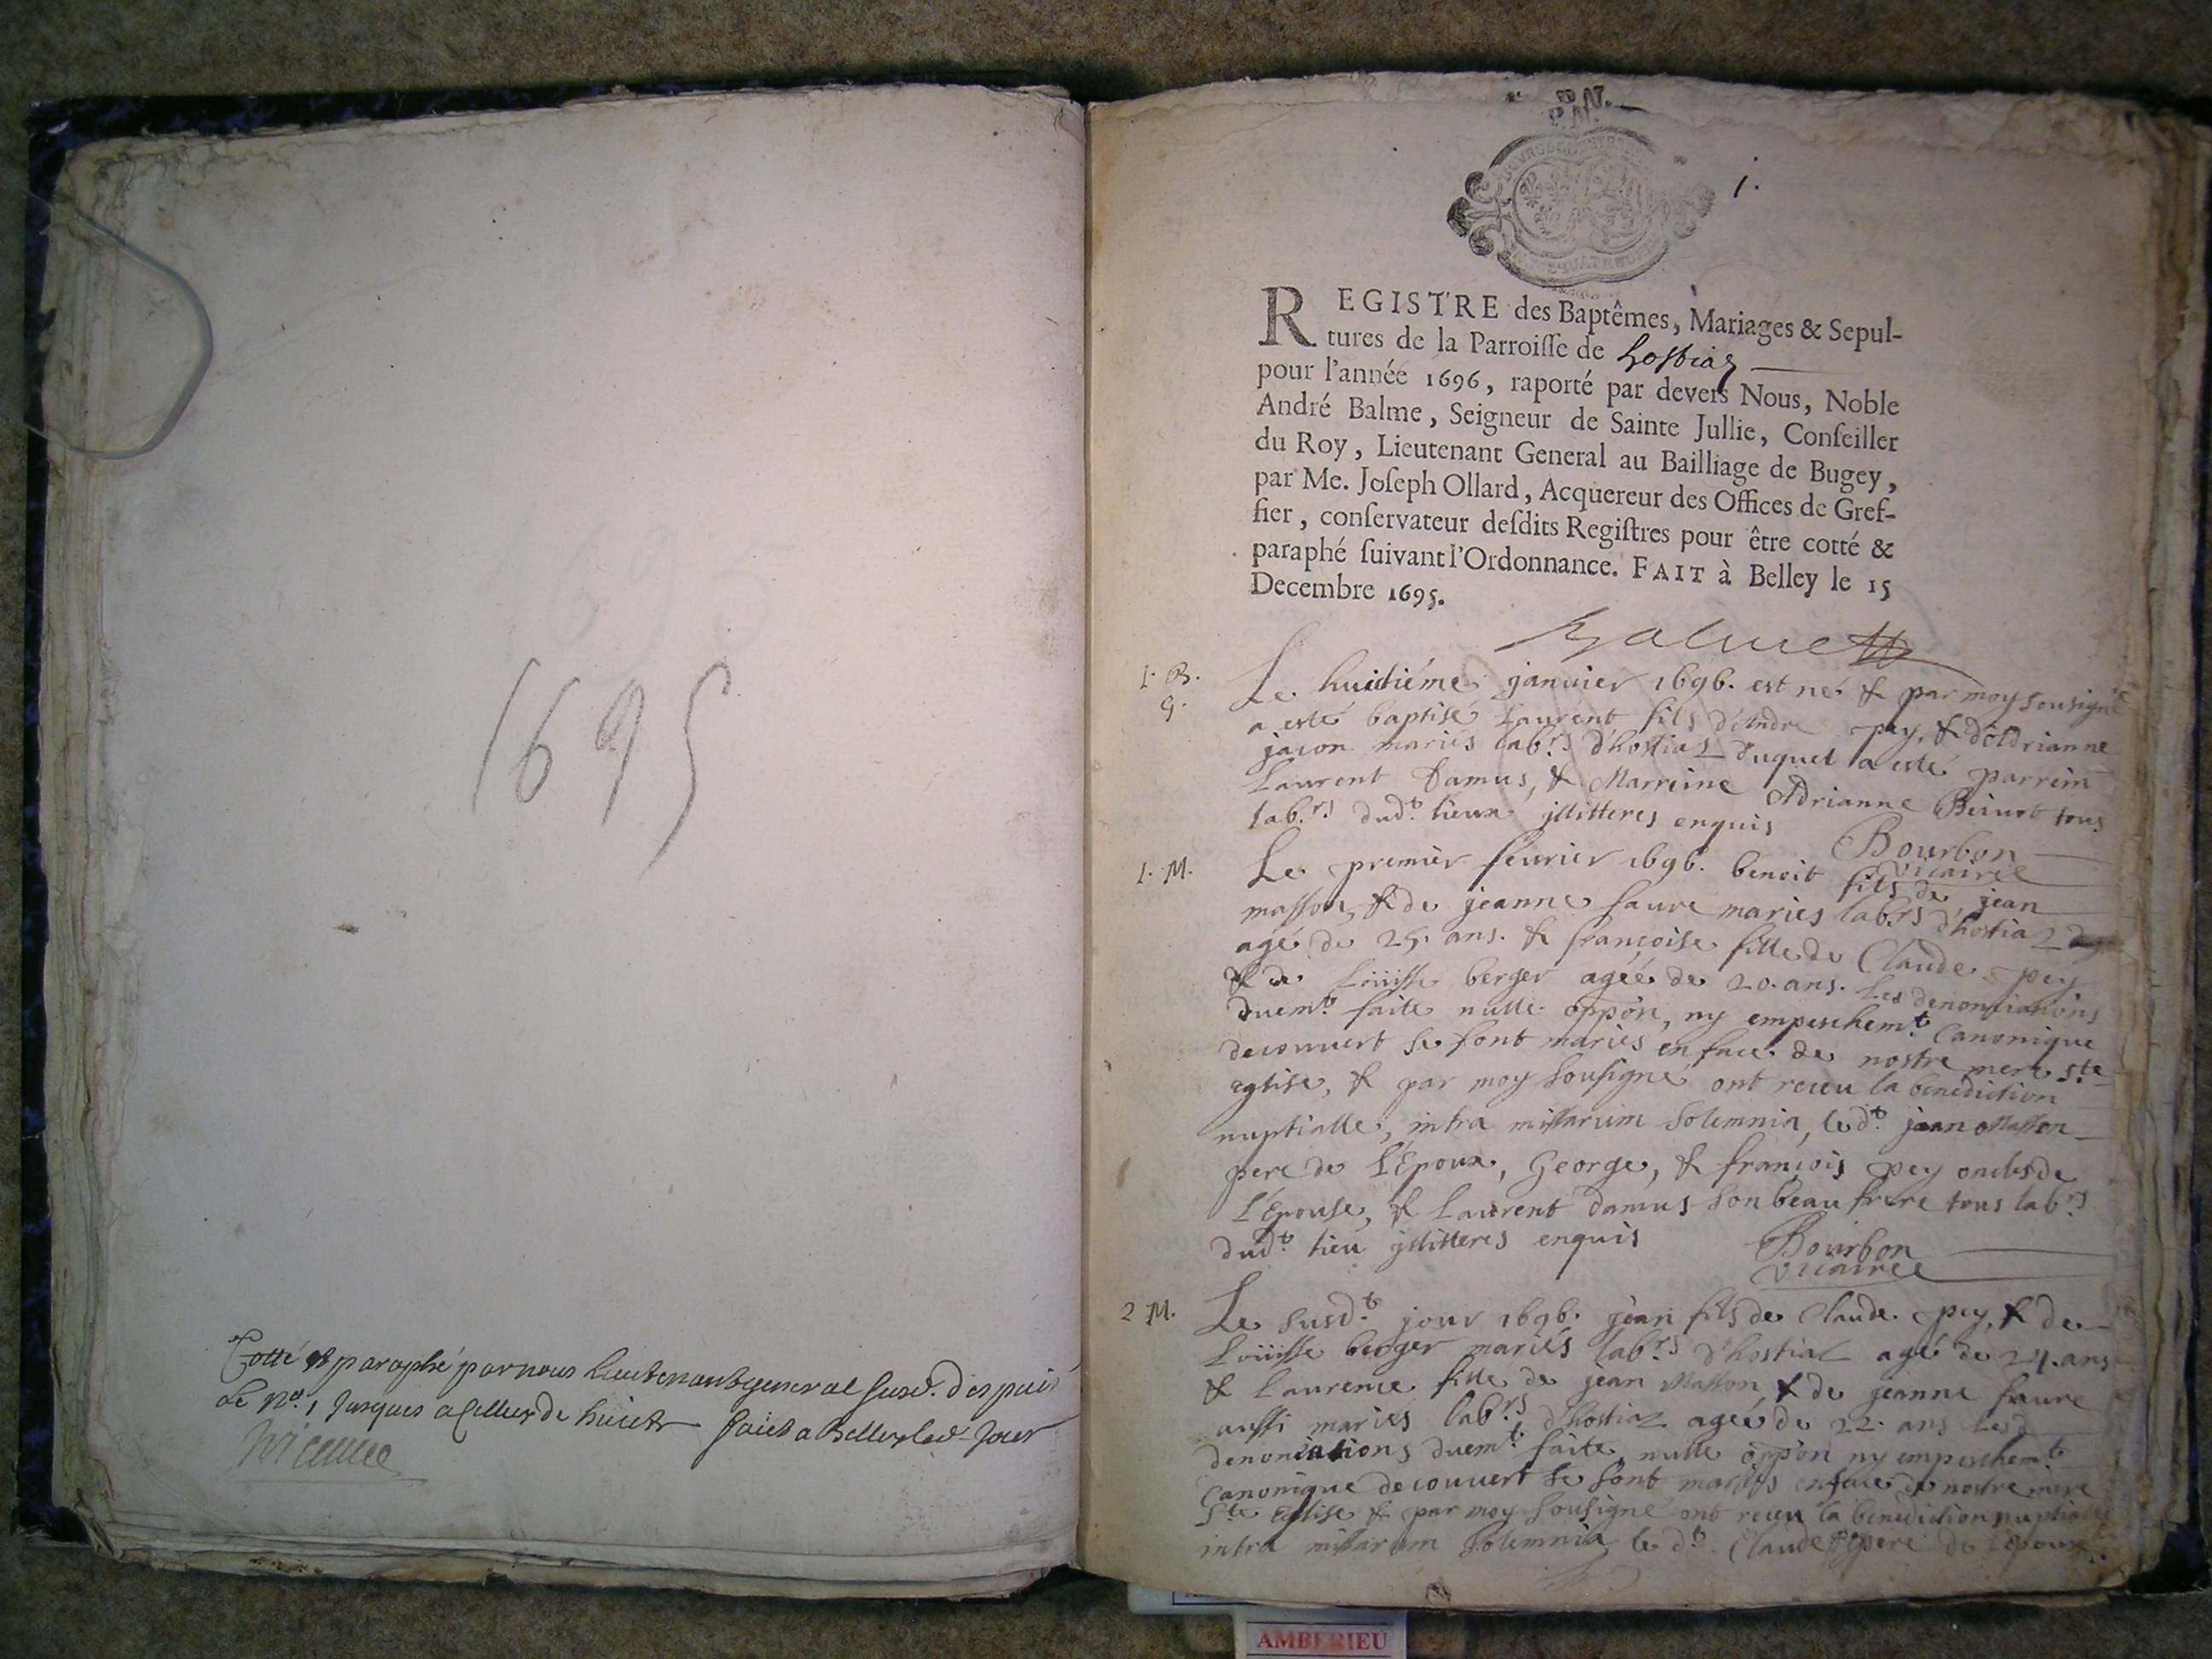 1695
Cotté et paraphé par nous lieutenant general susd. despuis
le No. 1 jusques a celluy de huict fait a Belley led. jour
1.
REGISTRE des Baptêmes, Mariages & Sepul-
tures de la Parroiſſe de hostiaz
pour l'année 1696, raporté par devers Nous, Noble
André Balme, Seigneur de Sainte Jullie, Conſeiller
du Roy, Lieutenant General au Bailliage de Bugey,
par Me. Joſeph Ollard, Acquereur des Offices de Gref-
fier, conſervateur deſdits Regiſtres pour être cotté &
paraphé ſuivant l'Ordonnance. FAIT à Belley le 15
Decembre 1695.
Balme
1. B.
G.
Le huictiéme janvier 1696. est né & par moy sousigné
a esté baptisé Laurent fils d'Andre pey, & d'Adrianne
jacon mariés labrs d'hostiaz duquel a esté parrein
Laurent Damus, & Marreine Adrianne tous
labrs dudt lieux jllitteres enquis Bourbon
vicaire
1. M.
Le premier feurier 1696. benoit fils de jean
masson, & de jeanne faure mariés labrs d'hostiaz
agé de 25. ans. & françoise fille de Claude pey
& de Loüisse berger agéé de 20. ans. Les denontiations
duemt faite nulle oppon, ny empeschemt Canonique
decouuert se sont mariés en face de nostre mere ste
eglise, & par moy sousigné ont receu la benediction
nuptialle, intra missarum solemnia, le dt jean Masson
pere de l'Epoux, George, & françois pey oncles de
l'Epouse, & Laurent damus son beau frere tous labrs
dudt lieu jllitteres enquis Bourbon
vicaire
2 M.
Le susdt jour 1696. jean fils de Claude pey, & de
Loüisse berger mariés labrs d'hostiaz agé de 24. ans
& Laurence fille de jean Masson & de jeanne faure
aussi mariés labrs d'hostiaz agéé de 22. ans Les
denonciations duemt faite, nulle oppon ny empeschemt
Canonique decouuert se sont mariés en face de nostre mere
Ste Eglise & par moy sousigné ont receu la benediction nuptialle
intra missarum solemnia, le dt Claude pey pere de l'epoux,
AMBERIEU